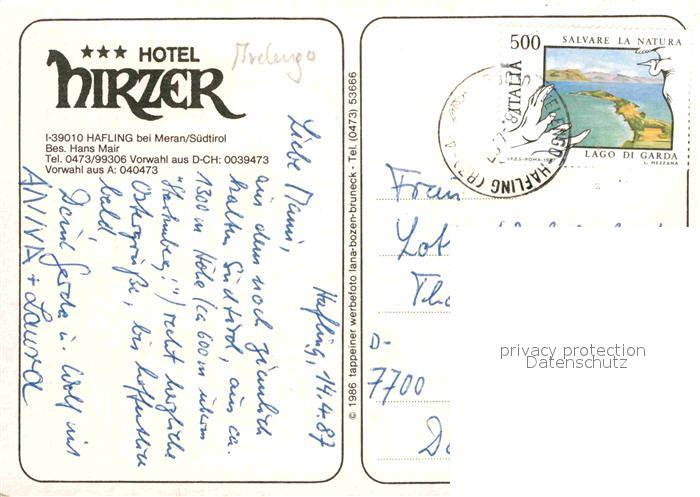 ★★★ HOTEL
HIRZER
Avelengo
I-39010 HAFLING bei Meran/Südtirol
Bes. Hans Mair
Tel. 0473/99306 Vorwahl aus D-CH: 0039473
Vorwahl aus A: 040473
Hafling, 14.4.87
Liebe Mami,
aus dem noch ziemlich
kalten Südtirol, aus ca.
1300 m Höhe (ca 600 m überm
recht herzliche
Ostergrüße, bis hoffentlich
bald
Deine Gerda u. Wolf mit
ANNA + Laura
© 1986 tappeiner werbefoto lana-bozen-bruneck - Tel. (0473) 53666
500 SALVARE LA NATURA
ITALIA
LAGO DI GARDA
I.P.Z.S.-ROMA-
L. MEZZANA
AVELENGO-HAFLING
Frau
Lot
D-
7700
privacy protection
Datenschutz